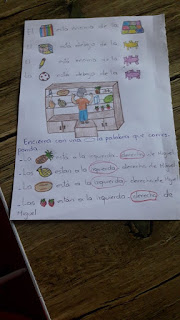 El está encima de la
está debajo de la
está encima de la
está debajo de la
Encierra con una la palabra que corres
ponda.
está a la izquierda, derecha de Miguel
Las están a la izquierda, derecha de Miguel
La está a la izquierda, derecha de Miguel
Las están a la izquierda, derecha de
Miguel